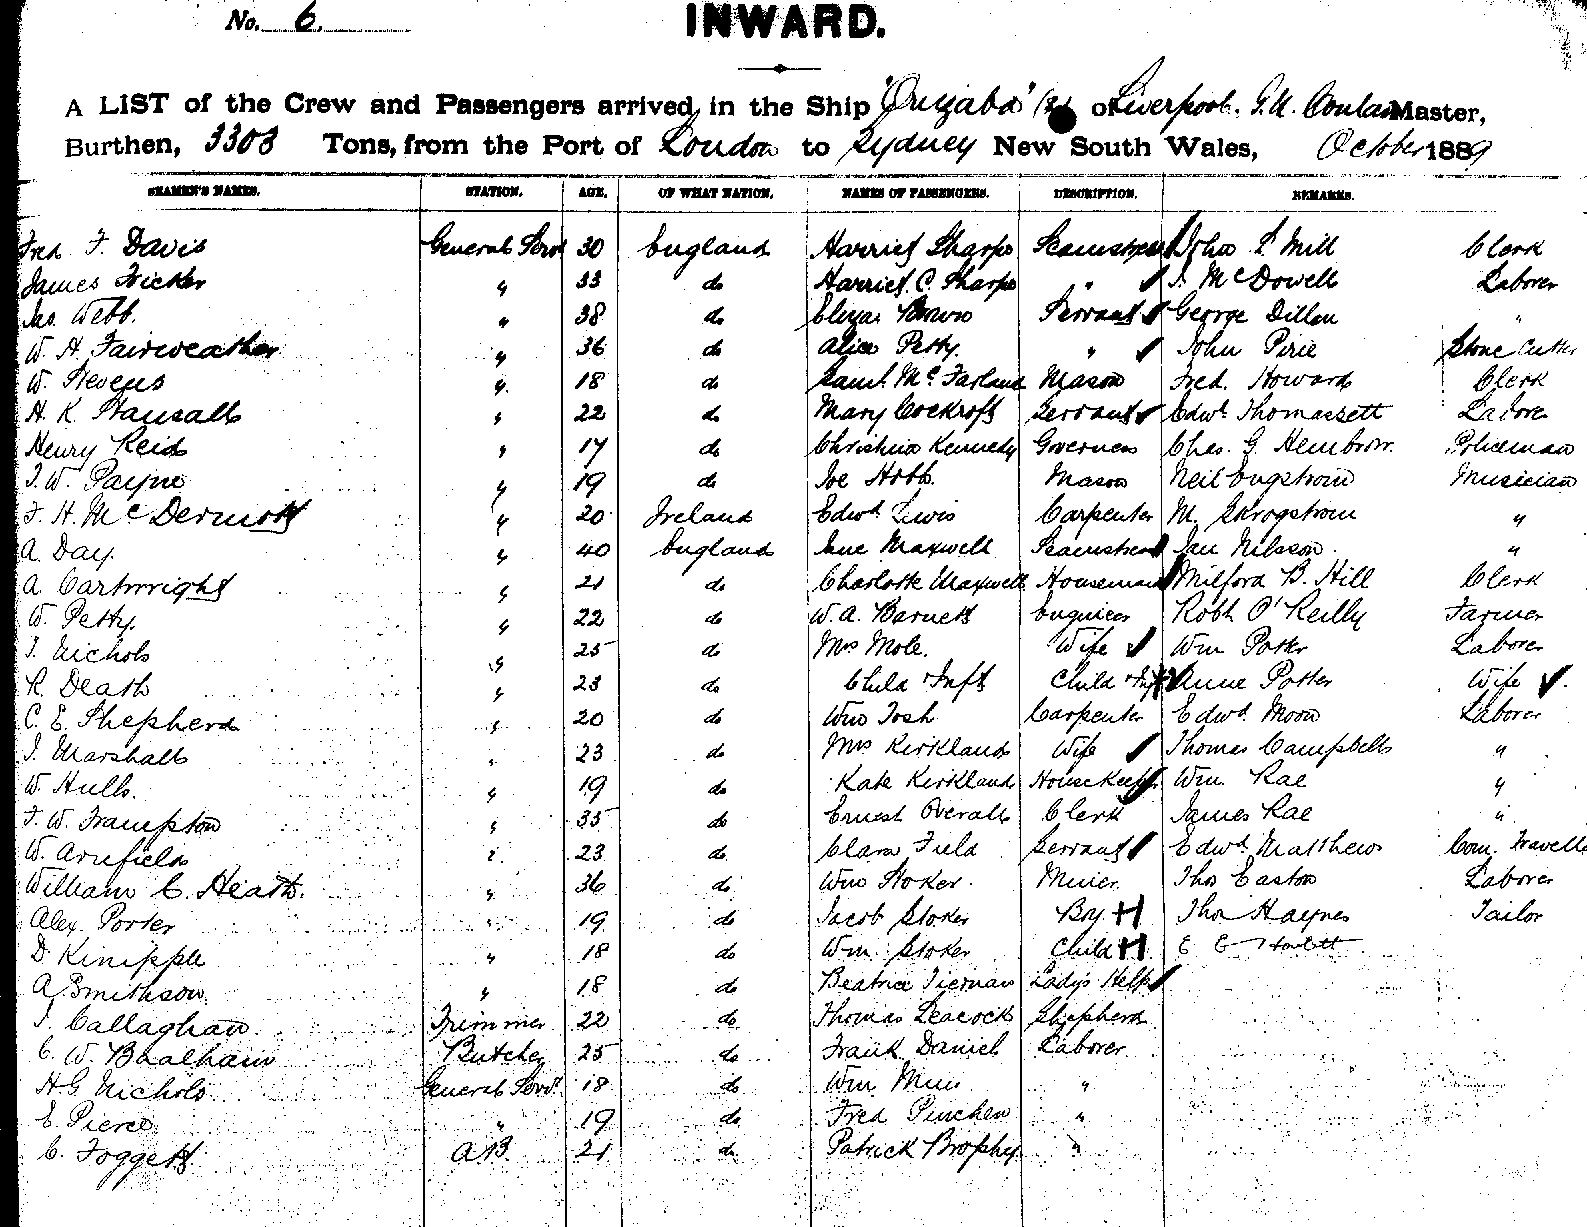 No. 6.
INWARD.
A LIST of the Crew and Passengers arrived in the Ship "Orizaba" of Liverpool, G. N. Conlan Master,
Burthen, 3303 Tons, from the Port of London to Sydney New South Wales, October 1889
SEAMEN'S NAMES. STATION. AGE. OF WHAT NATION. NAMES OF PASSENGERS. DESCRIPTION. REMARKS.
Fred F. Davis General Servt 30 England Harriet Sharpe Seamstress John S. Mill Clerk
James Fricker " 33 do Harriet C. Sharpe " J. McDowell Laborer
Jas. Webb. " 38 do Eliza Brown Servant George Dillon "
W. H. Fairweather " 36 do Alice Petty. " John Pirie Stone Cutter
W. Stevens " 18 do Saml. McFarland Mason Fred. Howard Clerk
H. K. Hansall " 22 do Mary Cockroft Servant Edwd. Thomassett Labore
Henry Reid " 17 do Christina Kennedy Governess Chas. G. Hembrow. Policeman
J. W. Payne " 19 do Joe Hobb. Mason Neil Engstrom Musician
F. H. McDermott " 20 Ireland Edwd Lewis Carpenter M. Skrogstrom "
A. Day. " 40 England Jane Maxwell Seamstress Jan Nilsson. "
A. Cartwright " 21 do Charlotte Maxwell Housemaid Milford B. Hill Clerk
W. Petty. " 22 do W. A. Barnett Engineer Robt O'Reilly Farmer
J. Nichols " 25 do Mrs Mole. Wife Wm Potter Laborer
R. Death " 23 do Child & Inft Child & Inft Anne Potter Wife
C. E. Shepherd " 20 do Wm Tosh Carpenter Edwd. Moon Laborer
J. Marshall " 23 do Mrs Kirkland Wife Thomas Campbell "
W. Hull. " 19 do Kate Kirkland House Keepr Wm. Rae "
F. W. Frampton " 35 do Ernest Overall Clerk James Rae "
W. Armfield " 23 do Clara Field Servant Edwd. Matthews Com. Travelle
William C. Heath. " 36 do Wm Stoker. Miner. Thos Easton Laborer
Alex. Porter " 19 do Jacob Stoker Boy H Thos Haynes Tailor
D. Knipple " 18 do Wm. Stoker Child H E E Howlett
A. Smithson. " 18 do Beatrice Tiernan Ladys Help
J. Callaghan. Trimmer 22 do Thomas Leacock Shepherd
C. W. Baalham Butcher 25 do Frank Daniel Laborer.
H. G. Nichols General Servt. 18 do Wm Muir "
E. Pierce " 19 do Fred Pinchen "
C. Foggett AB. 21 do Patrick Brophy "